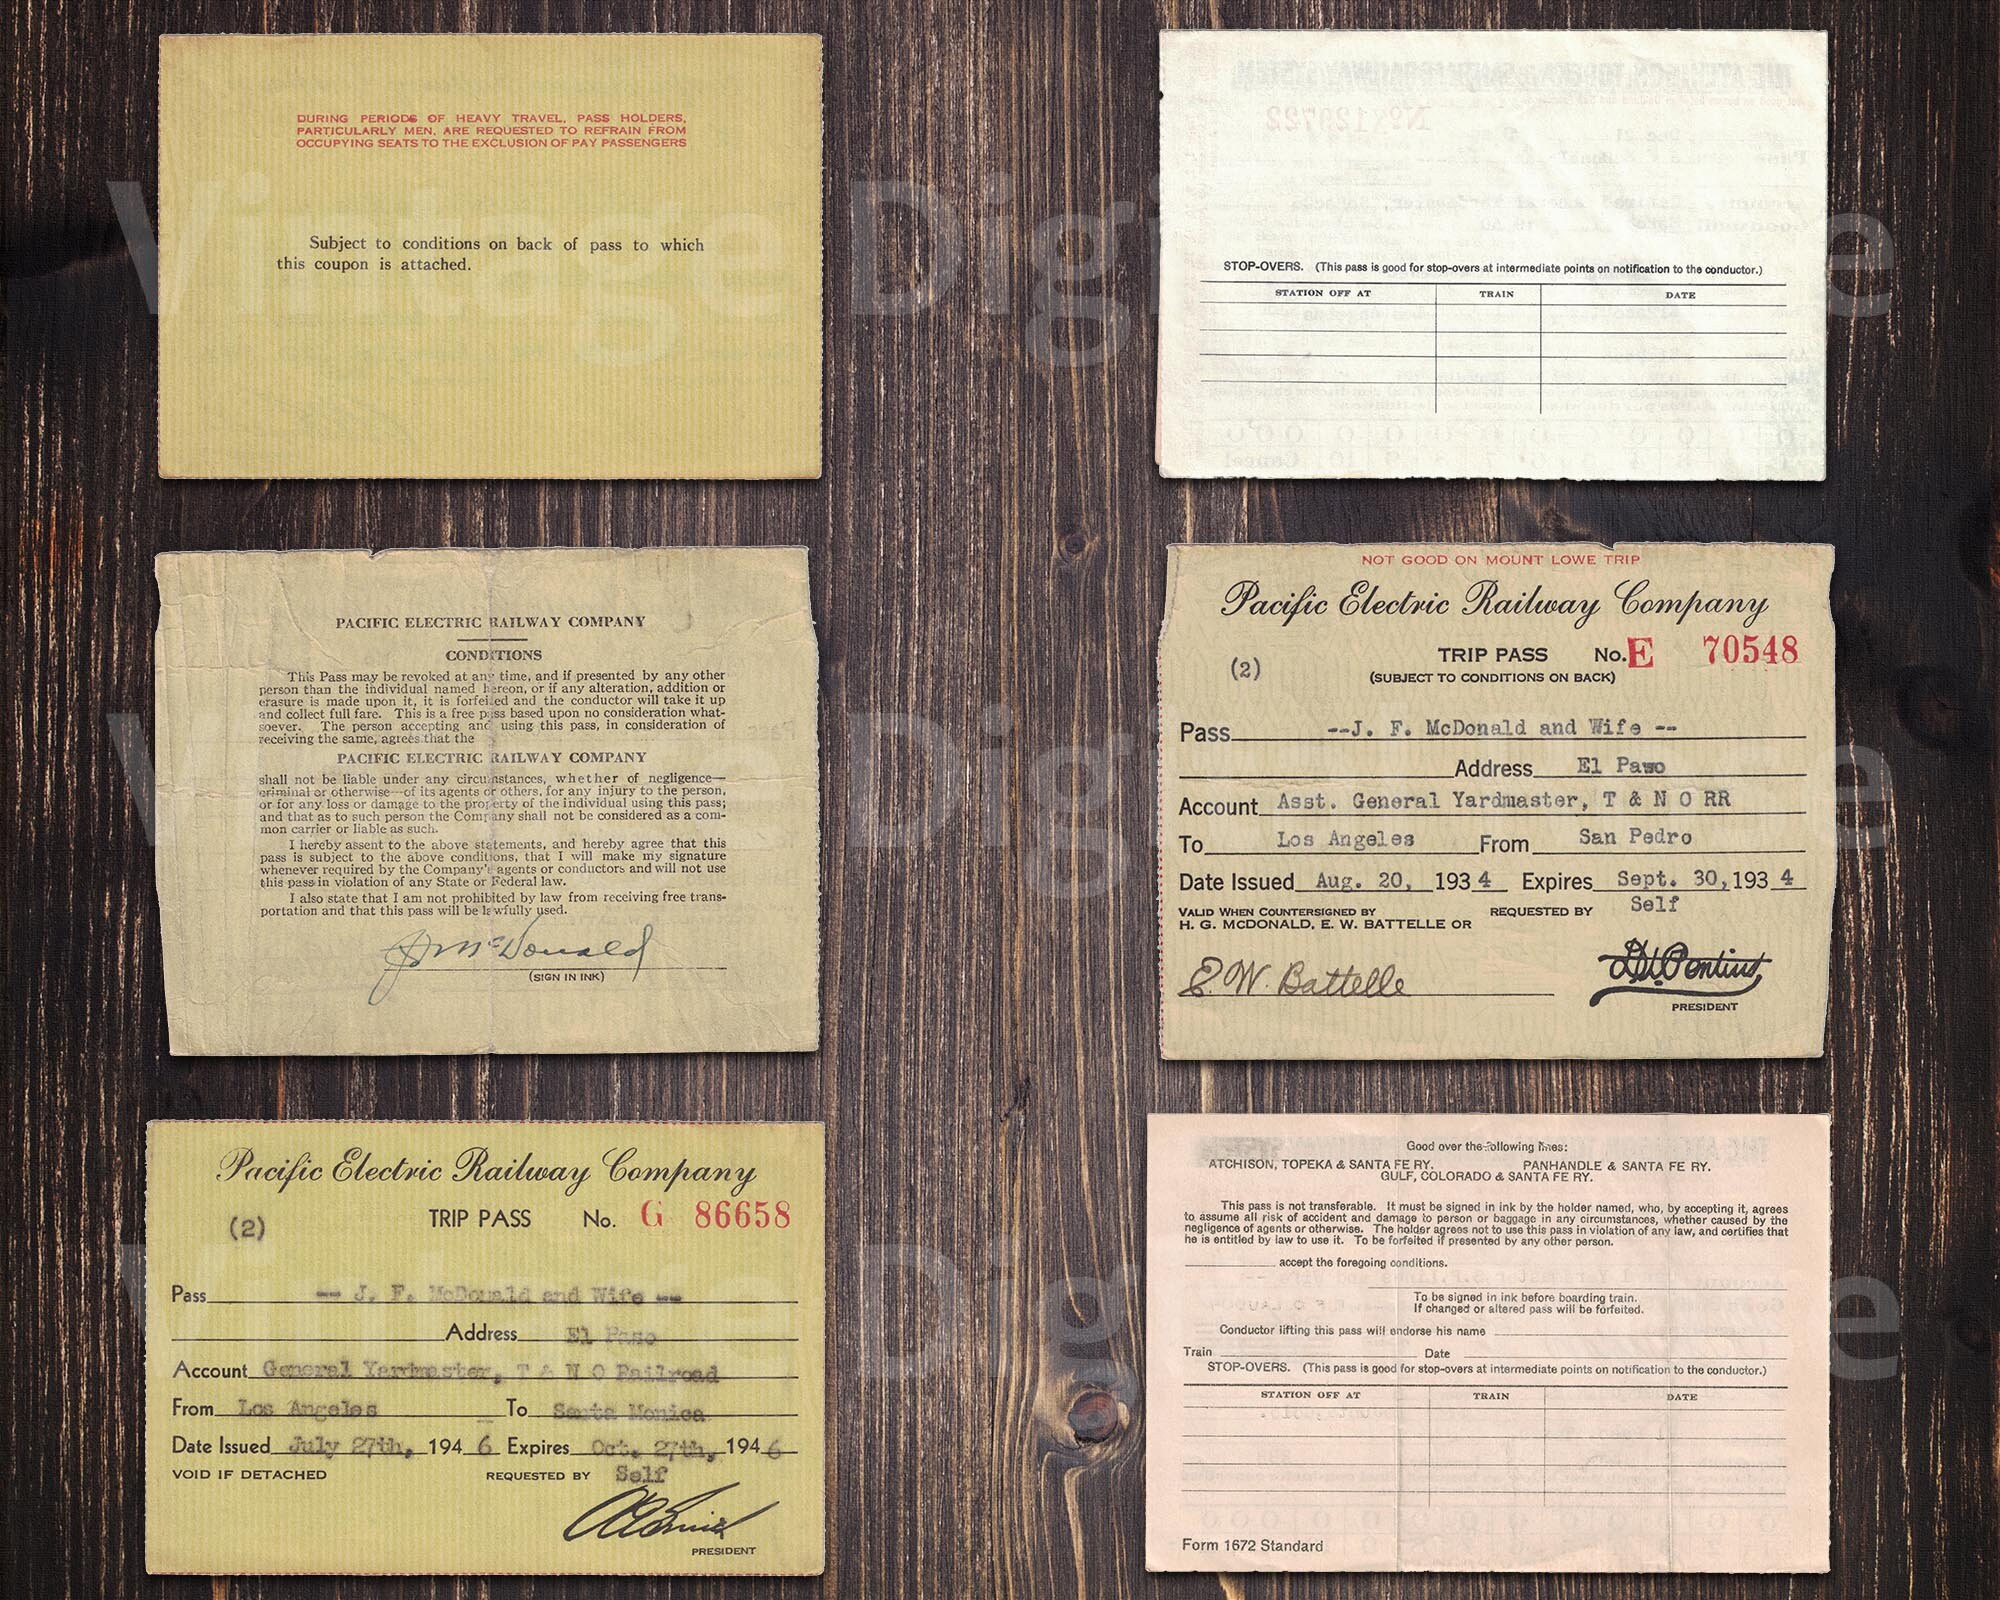 DURING PERIODS OF HEAVY TRAVEL, PASS HOLDERS,
PARTICULARLY MEN, ARE REQUESTED TO REFRAIN FROM
OCCUPYING SEATS TO THE EXCLUSION OF PAY PASSENGERS
Subject to conditions on back of pass to which
this coupon is attached.
STOP-OVERS. (This pass is good for stop-overs at intermediate points on notification to the conductor.)
STATION OFF AT TRAIN DATE
PACIFIC ELECTRIC RAILWAY COMPANY
CONDITIONS
This Pass may be revoked at any time, and if presented by any other
person than the individual named hereon, or if any alteration, addition or
erasure is made upon it, it is forfeited and the conductor will take it up
and collect full fare. This is a free pass based upon no consideration what-
soever. The person accepting and using this pass, in consideration of
receiving the same, agrees that the
PACIFIC ELECTRIC RAILWAY COMPANY
shall not be liable under any circumstances, whether of negligence—
criminal or otherwise—of its agents or others, for any injury to the person,
or for any loss or damage to the property of the individual using this pass;
and that as to such person the Company shall not be considered as a com-
mon carrier or liable as such.
I hereby assent to the above statements, and hereby agree that this
pass is subject to the above conditions, that I will make my signature
whenever required by the Company's agents or conductors and will not use
this pass in violation of any State or Federal law.
I also state that I am not prohibited by law from receiving free trans-
portation and that this pass will be lawfully used.
J F McDonald
(SIGN IN INK)
NOT GOOD ON MOUNT LOWE TRIP
Pacific Electric Railway Company
TRIP PASS No. E 70548
(2) (SUBJECT TO CONDITIONS ON BACK)
Pass --J. F. McDonald and Wife --
Address El Paso
Account Asst. General Yardmaster, T & N O RR
To Los Angeles From San Pedro
Date Issued Aug. 20, 1934 Expires Sept. 30, 1934
VALID WHEN COUNTERSIGNED BY REQUESTED BY Self
H. G. MCDONALD, E. W. BATTELLE OR
E. W. Battelle D.W. Pontius
PRESIDENT
Pacific Electric Railway Company
(2) TRIP PASS No. G 86658
Pass -- J. F. McDonald and Wife --
Address El Paso
Account General Yardmaster, T & N O Railroad
From Los Angeles To Santa Monica
Date Issued July 27th, 1946 Expires Oct. 27th, 1946
VOID IF DETACHED REQUESTED BY Self
PRESIDENT
Good over the following lines:
ATCHISON, TOPEKA & SANTA FE RY. PANHANDLE & SANTA FE RY.
GULF, COLORADO & SANTA FE RY.
This pass is not transferable. It must be signed in ink by the holder named, who, by accepting it, agrees
to assume all risk of accident and damage to person or baggage in any circumstances, whether caused by the
negligence of agents or otherwise. The holder agrees not to use this pass in violation of any law, and certifies that
he is entitled by law to use it. To be forfeited if presented by any other person.
accept the foregoing conditions.
To be signed in ink before boarding train.
If changed or altered pass will be forfeited.
Conductor lifting this pass will endorse his name
Train Date
STOP-OVERS. (This pass is good for stop-overs at intermediate points on notification to the conductor.)
STATION OFF AT TRAIN DATE
Form 1672 Standard